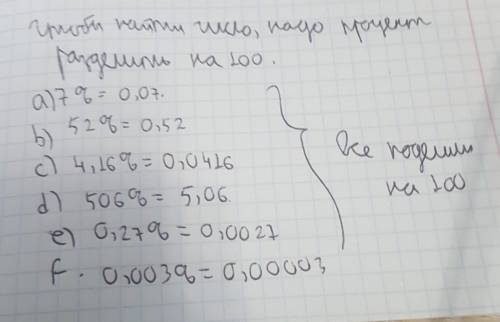 Чтобы найти число, надо процент
разделить на 100.
a) 7% = 0,07.
b) 52% = 0,52
c) 4,16% = 0,0416
d) 506% = 5,06.
e) 0,27% = 0,0027
f. 0,003% = 0,00003
Все поделим
на 100